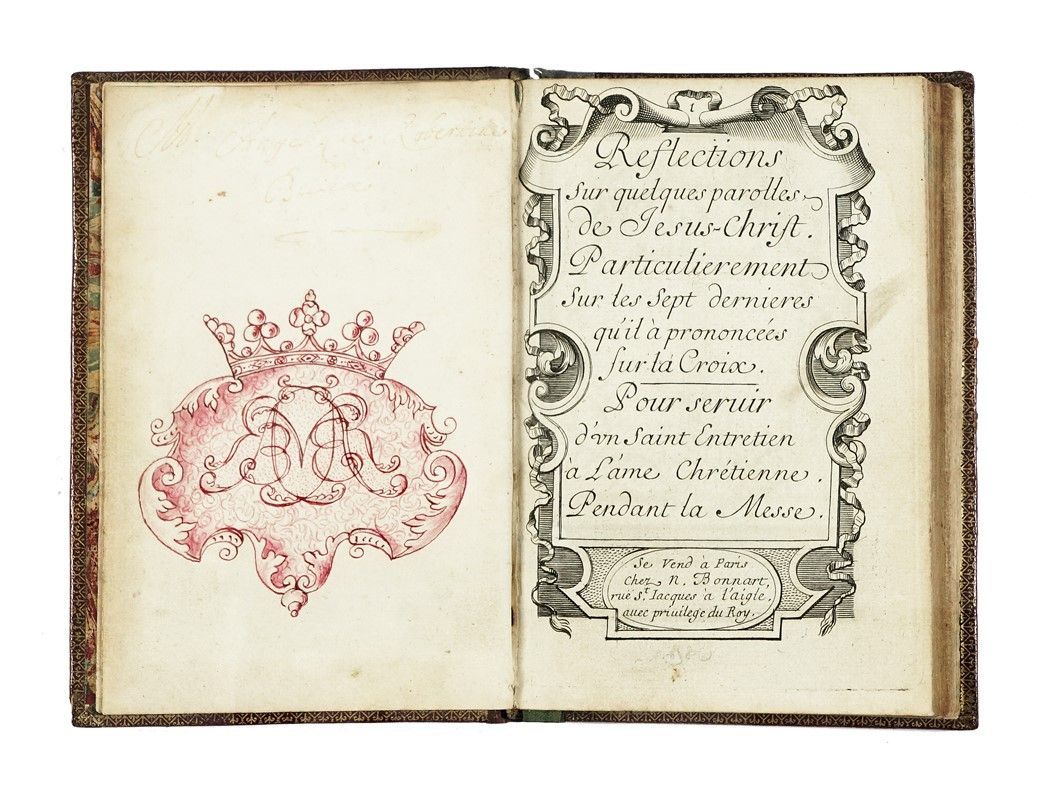 1
Reflections
sur quelques parolles
de Jesus-Christ.
Particulierement
sur les sept dernieres
qu'il à prononcées
sur la Croix.
Pour seruir
d'vn saint Entretien
à L'âme Chrétienne.
Pendant la Messe.
Se Vend à Paris
Chez N. Bonnart,
ruë St. Iacques a l'aigle.
auec priuilege du Roy.